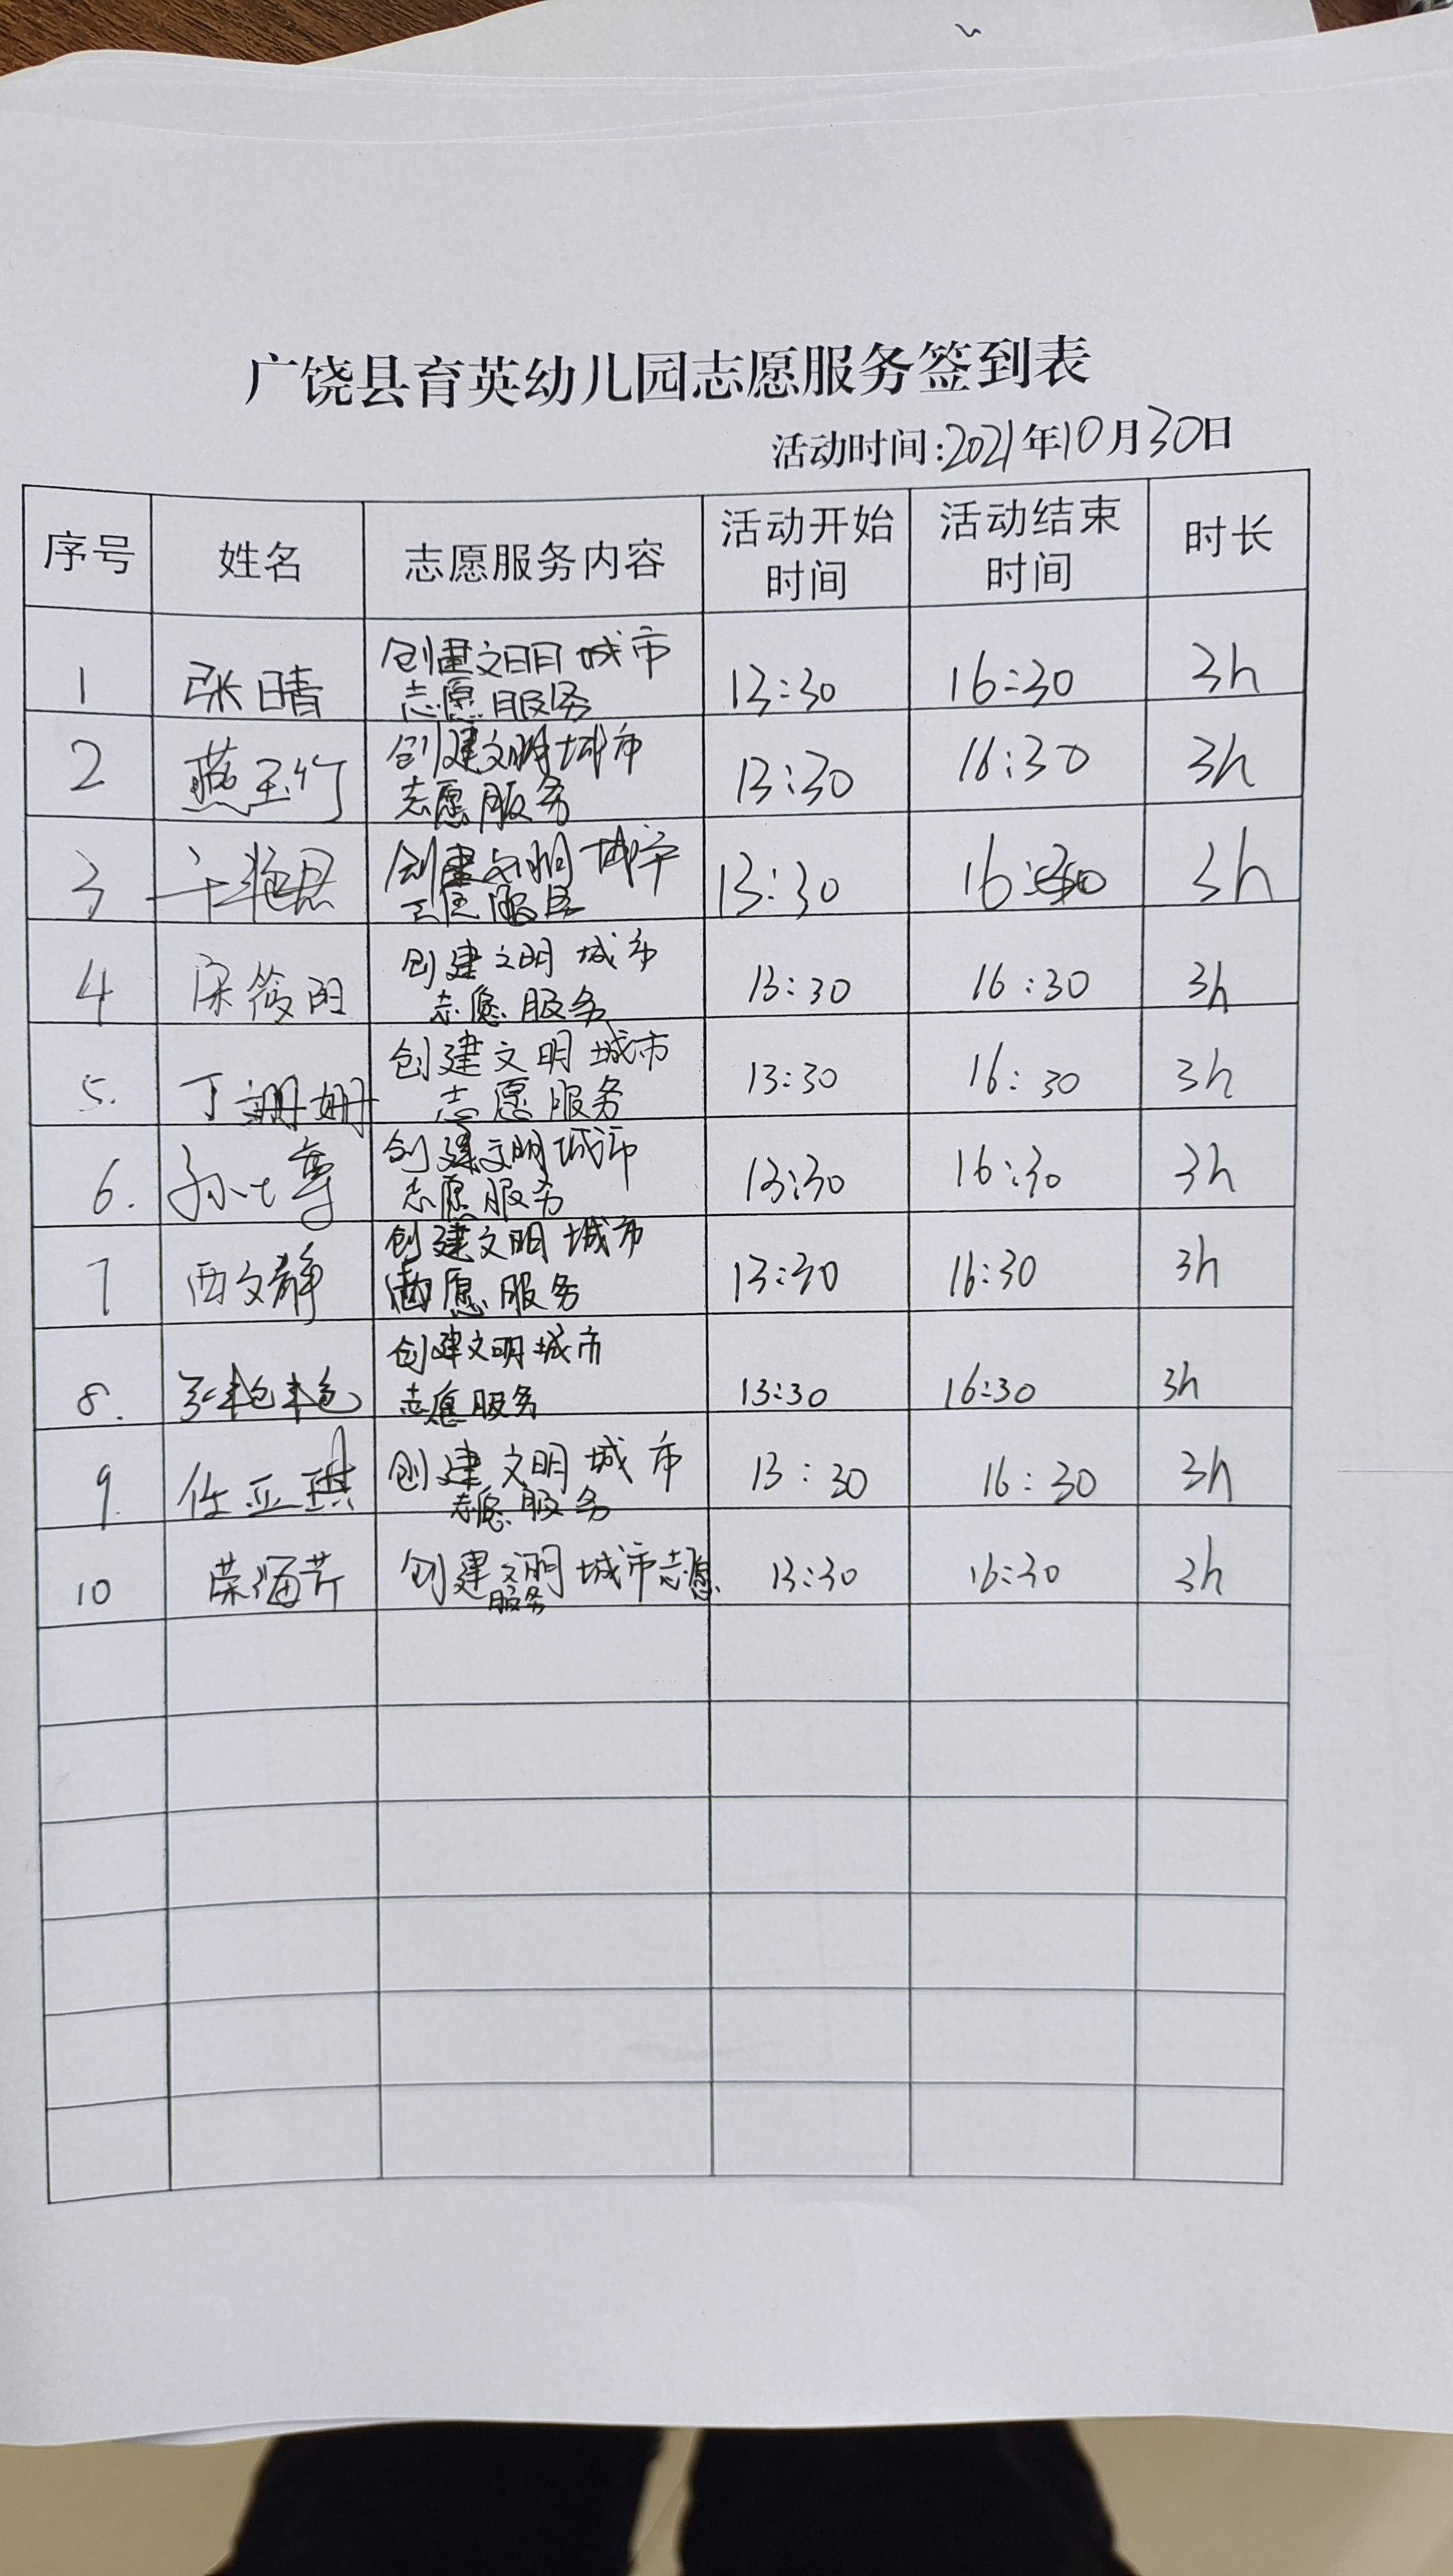 广饶县育英幼儿园志愿服务签到表
活动时间:2021年10月30日
序号 姓名 志愿服务内容 活动开始时间 活动结束时间 时长
1 张晴 创建文明城市 13:30 16:30 3h
志愿服务
2 燕玉竹 创建文明城市 13:30 16:30 3h
志愿服务
3 创建文明城市 13:30 16:30 3h
服务
4 宋筱 创建文明城市 13:30 16:30 3h
志愿服务
5. 丁姗姗 创建文明城市 13:30 16:30 3h
志愿服务
6. 孙 创建文明城市 13:30 16:30 3h
志愿服务
7 西文静 创建文明城市 13:30 16:30 3h
愿服务
8. 创建文明城市 13:30 16:30 3h
志愿服务
9. 任亚琪 创建文明城市 13:30 16:30 3h
志愿服务
10 荣海芹 创建文明城市志愿 13:30 16:30 3h
服务